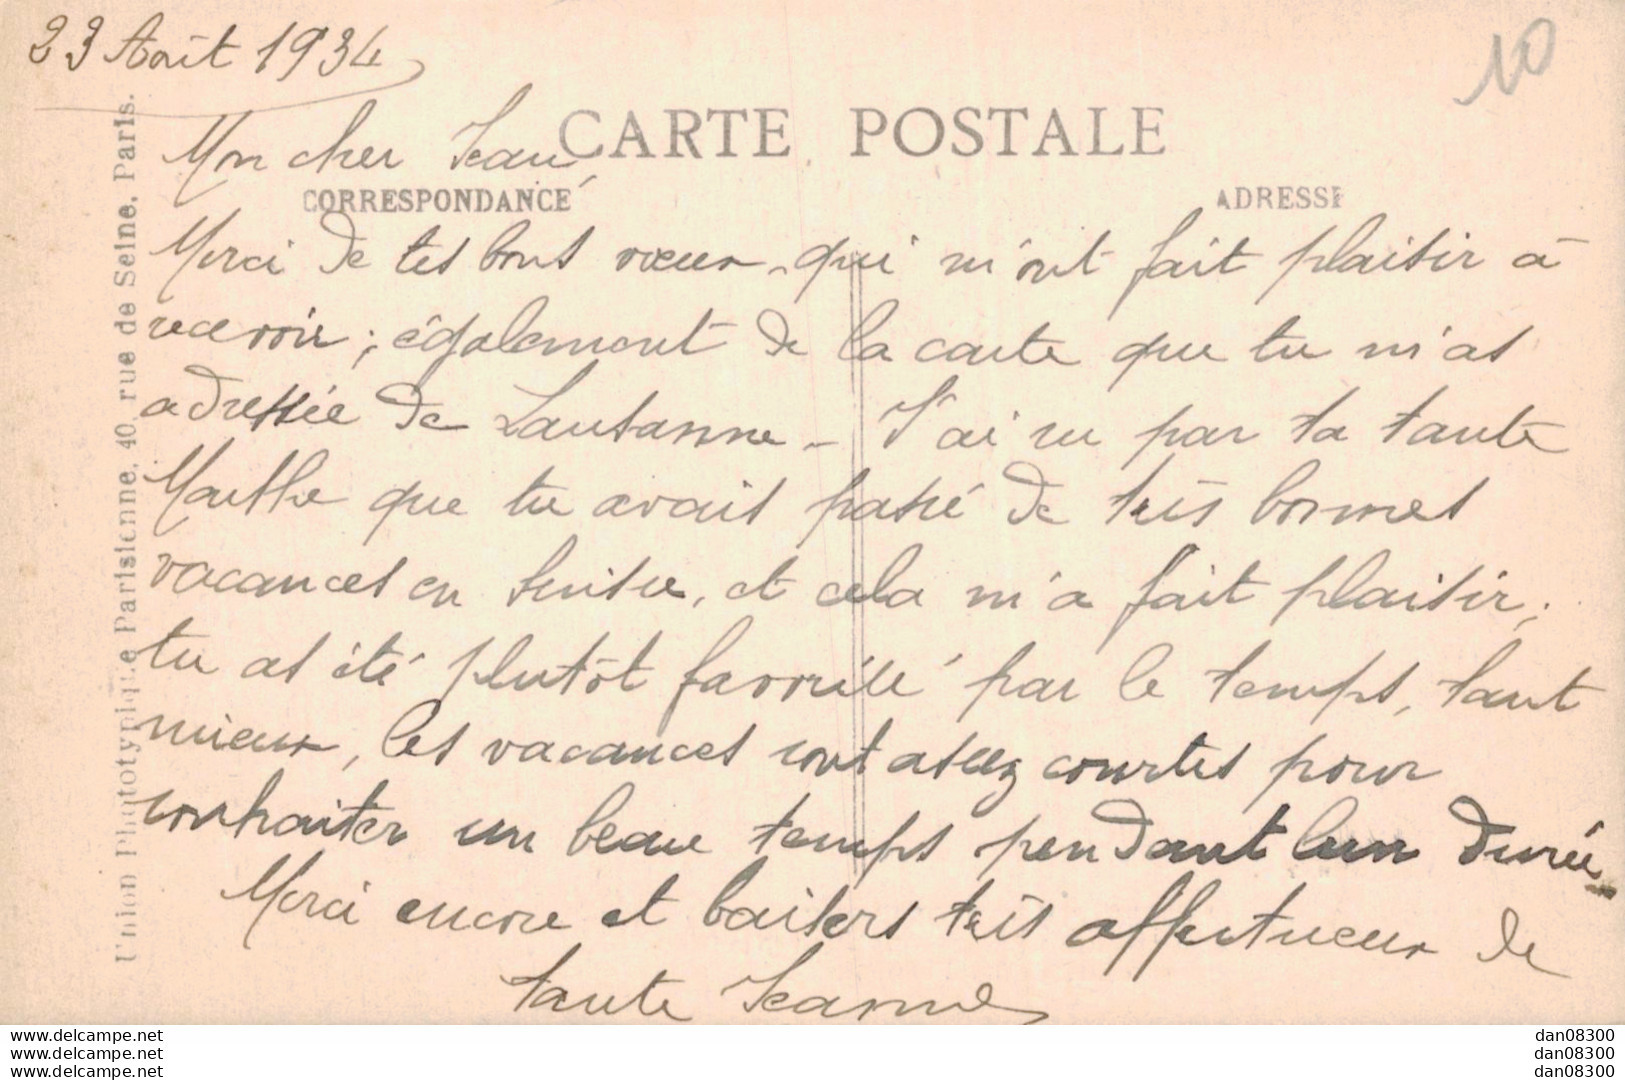 23 Août 1934
10
CARTE POSTALE
Mon cher Jean,
CORRESPONDANCE
ADRESSE
Merci de tes bons vœux qui m'ont fait plaisir à
recevoir ; également de la carte que tu m'as
adressée de Lausanne - J'ai su par ta tante
Marthe que tu avais passé de très bonnes
vacances en Suisse, et cela m'a fait plaisir ;
tu as été plutôt favorisé par le temps, tant
mieux, les vacances sont assez courtes pour
souhaiter un beau temps pendant leur durée
Merci encore et baisers très affectueux de
tante Jeanne
L'Union Phototypique Parisienne, 40, rue de Seine, Paris.
www.delcampe.net
www.delcampe.net
www.delcampe.net
dan08300
dan08300
dan08300